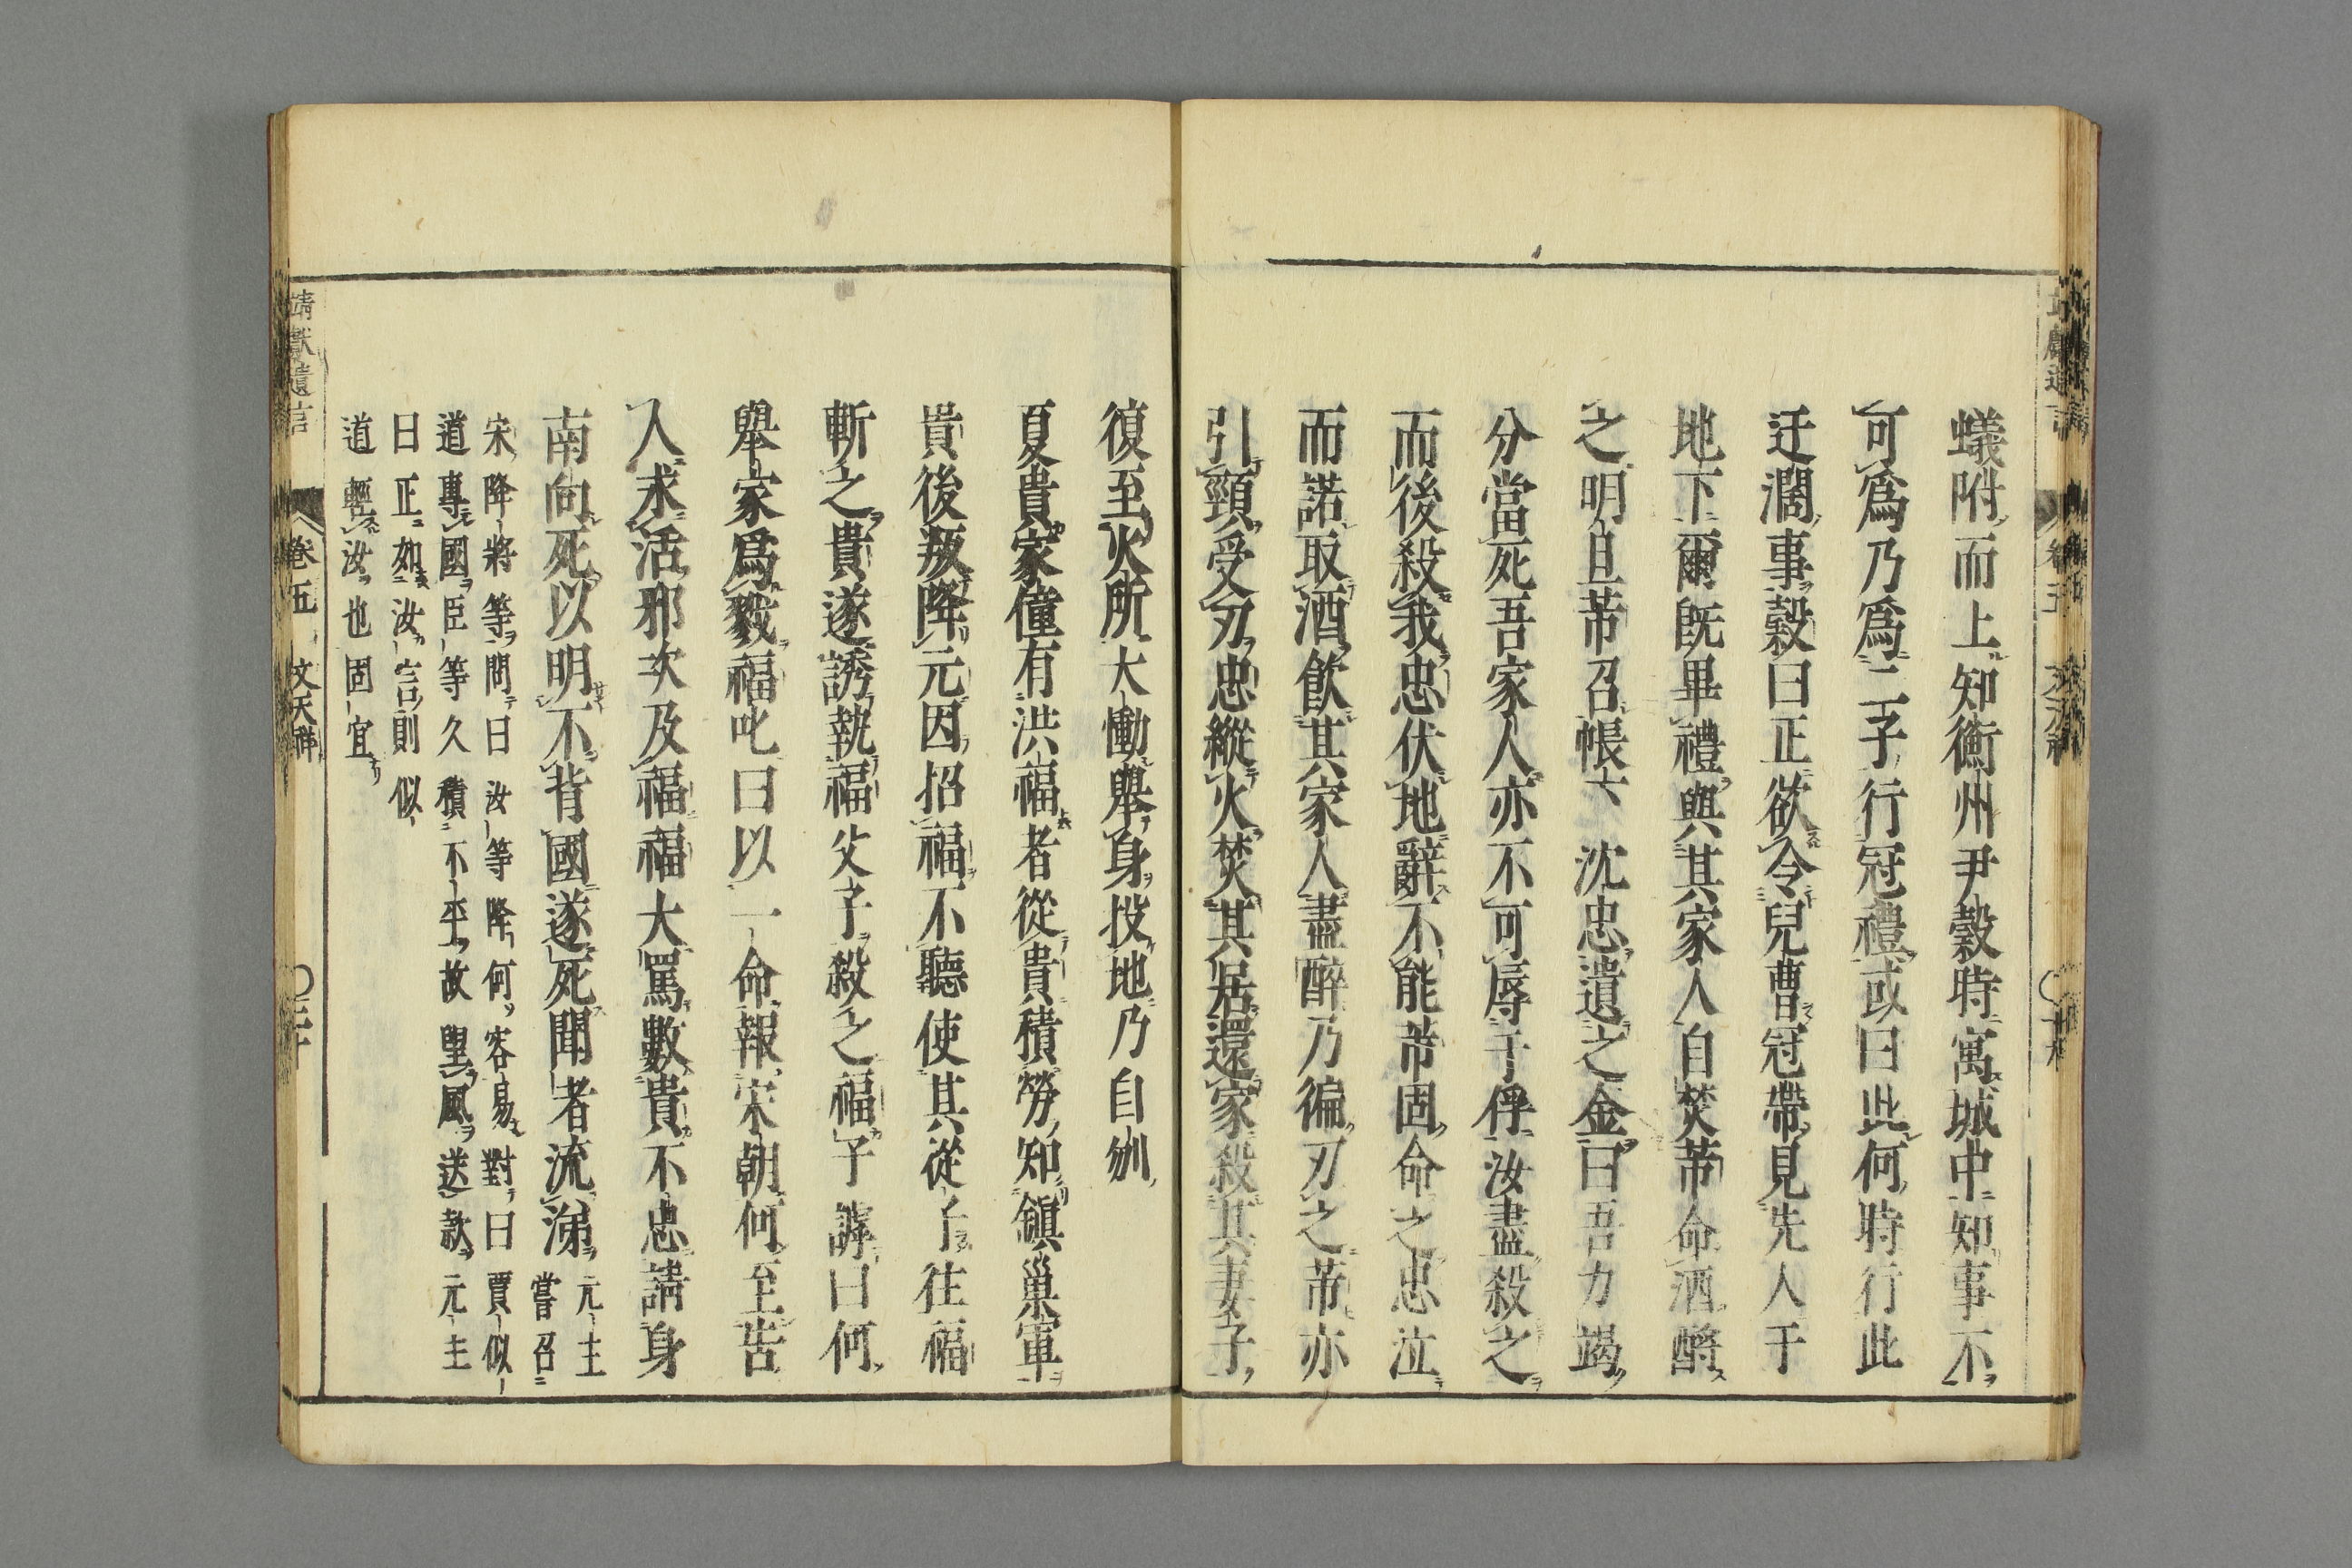 蟻附而上知衡州尹穀時寓城中知事不
可爲乃爲二子行冠禮或曰此何時行此
迂濶事穀曰正欲令兒曹冠帶見先人于
地下爾既畢禮與其家人自焚芾命酒酹
之明旦芾召帳下沈忠遺之金曰吾力竭
分當死吾家人亦不可辱于俘汝盡殺之
而後殺我忠伏地辭不能芾固命之忠泣
而諾取酒飲其家人盡醉乃徧刃之芾亦
引頸受刃忠縱火焚其居還家殺其妻子
復至火所大慟舉身投地乃自刎
夏貴家僮有洪福者從貴積勞知鎮巢軍
貴後叛降元因招福不聽使其從子往福
斬之貴遂誘執福父子殺之福子謼曰何
舉家爲戮福叱曰以一命報宋朝何至告
人求活邪次及福福大罵數貴不忠請身
南向死以明不背國遂死聞者流涕元主
嘗召
宋降將等問曰汝等降何容易對曰賈似
道專國臣等久積不平故望風送款元主
曰正如汝言則似
道輕汝也固宜
靖獻遺言
卷五
文天祥
三十